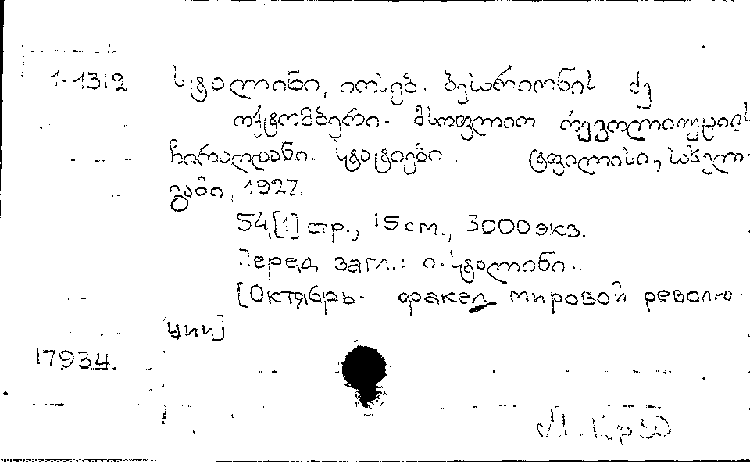 1-1312 სტალინი, იოსებ. ბესარიონის ძე
ოქტომბერი - მსოფლიო რევოლიუციის
ჩირაღდანი. სტატიები. ტფილისი, სახელ-
გამი, 1927.
54,[1] стр., 15 см., 3000 экз.
Перед загл.: ი. სტალინი.
[Октябрь - факел мировой револю-
ции]
17934.